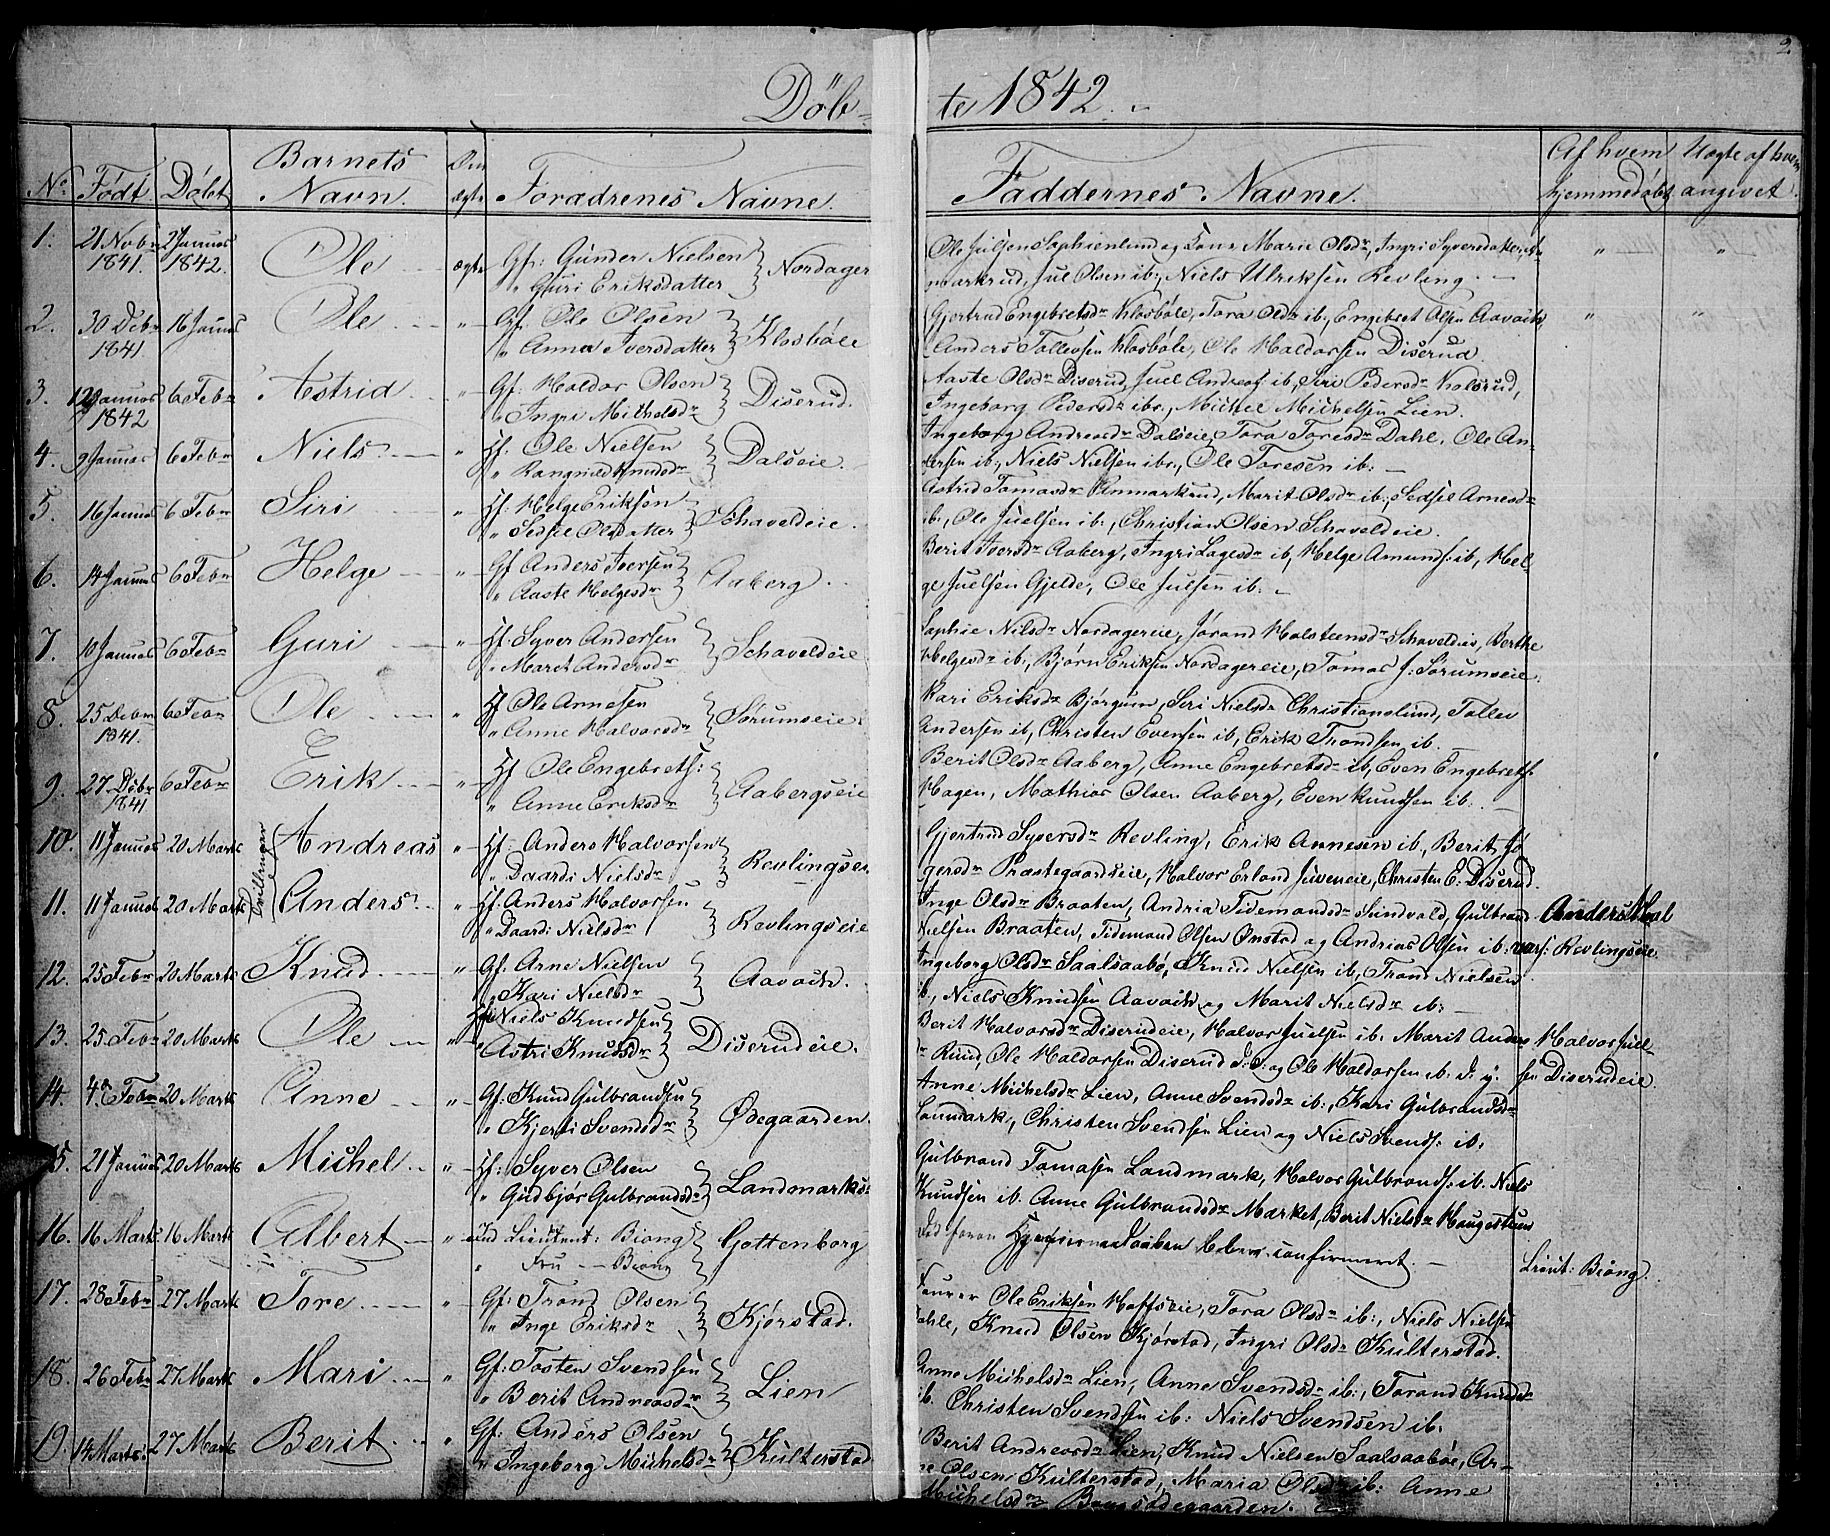 2
Døbte 1842.
No. Født Døbt Barnets Navn. Om ægte Foradrenes Navne. Faddernes Navne. Af hvem hjemmedøbt Uægte af hvem angivet.
1. 21 Nvbr 1841. 2 Januar 1842. Ole ægte Gf: Gunder Nielsen
" Guri Eriksdatter Nordager
Ole Julsen Sophienlund og Kone Marie Olsdr, Ingri Syversdatter
markrud, Jul Olsen ib:, Niels Ulriksen Revling.
2. 30 Debr 1841. 16 Januar Ole " Gf: Ole Olsen
" Anna Iversdatter Klosbøle
Gjertrud Engebretsdr Klosbøle, Tora Olsdr ib:, Engebret Olsen Aavoik,
Anders Tollevsen Klosbøle, Ole Haldorsen Diserud.
3. Januar 1842 6 Febr Astrid " Gf: Haldor Olsen
" Ingri Michelsdr Diserud.
Aaste Olsdr Diserud, Juel Andreas ib, Siri Pedersdr Kolsrud,
Ingeborg Pedersdr ibr., Michel Michelsen Lien.
4. 9 Januar 6 Febr Niels " Hf: Ole Nielsen
" Rangnild Knudsdr Dalseie.
Ingeborg Andreasdr Dalseie, Tora Toresdr Dahl, Ole An-
dersen ib:, Niels Nielsen ibr., Ole Toresen ib:
5. 16 Januar 6 Febr Siri " Hf: Helge Eriksen
" Sidsel Olsdatter Schaveldeie.
Astrid Tomasdr Anmarkrud, Marit Olsdr ib:, Sidsel Arnesdr
ib:, Ole Juelsen ib:, Christian Olsen Schaveldeie.
6. 14 Januar 6 Febr Helge " Gf Anders Iversen
" Aaste Helgesdr Aaberg.
Berit Iversdr Aaberg, Ingri Lagesdr ib, Helge Amunds: ib, Hel-
ge Juelsen Gjelde, Ole Julsen ib:
7. 10 Januar 6 Febr Guri " Hf: Syver Andersen
" Maret Andersdr Schaveldeie
Sophie Nilsdr Nordagereie, Jørand Halsteensdr Schaveldeie, Berthe
Helgesdr ib:, Bjørn Eriksen Nordagereie, Tomas J: Sørumseie.
8. 25 Debr 1841. 6 Febr Ole " Hf Ole Annesen
" Anne Halvorsdr Sørumseie
Kari Eriksdr Bjørgum, Siri Nielsdr Christianslund, Tollev
Andersen ib, Christen Evensen ib, Erik Trondsen ib.
9. 27 Debr 1841 6 Febr Erik " Hf Ole Engebrets:
" Anne Eriksdr Aabergseie
Berit Olsdr Aaberg, Anne Engebretsdr ib, Even Engebrets:
Hagen, Mathias Olsen Aaberg, Even Knudsen ib.
10. 11 Januar 20 Marts Tvillinger Andreas " Hf: Anders Halvorsen
" Daardi Nielsdr Revlingseie
Gjertrud Syversdr Revling, Erik Annesen ib, Berit Jø
gersdr Præstegaardseie, Halvor Erland Juveneie, Christen E: Diserud.
11. 11 Januar 20 Marts Anders " Hf: Anders Halvorsen
" Daardi Nielsdr Revlingseie
Inge Olsdr Braaten, Andria Tidemandsdr Sundvold, Gulbrand
Nielsen Braaten, Tidemand Olsen Onstad og Andrias Olsen ib:
Anders Hal
vors: Revlingseie
12. 25 Febr 20 Marts Knud " Gf: Arne Nielsen
" Kari Nielsdr Aavoik.
Ingeborg Olsdr Saalsaabø, Knud Nielsen ib, Trond Nielsen
ib., Niels Knudsen Aavoik og Marit Nielsdr ib:
13. 25 Febr 20 Marts Ole " Niels Knudsen
Astri Knudsdr Diserudeie.
Berit Halvorsdr Diserudeie, Halvor Juelsen ib. Marit Anders
dr Ruud, Ole Haldorsen Diserud d: e: og Ole Haldorsen ib. d: y.
Halvor Juel-
sen Diserudeie.
14. 4 Febr 20 Marts Anne " Gf: Knud Gulbrandsen
" Kjersti Svendsdr Ødegaarden.
Anne Michelsdr Lien, Anne Svendsdr ib:, Kari Gulbrandsdr
Lanmark, Christen Svendsen Lien og Niels Svends: ib:
15. 21 Januar 20 Marts Michel " Hf: Syver Olsen
" Gudbjør Gulbrandsdr Landmarks-
Gulbrand Tomasen Landmark, Halvor Gulbrands: ib. Niels
Knudsen ib. Anne Gulbrandsdr Market, Berit Nielsdr Haugestuen
16. 16 Marts 16 Marts Albert " Lieutent: Biong
" Fru Biong Gottenborg
confirmeret.
Lieut: Biong.
17. 28 Febr 27 Marts Tore " Gf: Trond Olsen
" Inge Eriksdr Kjørstad.
Ole Eriksen Hoffseie, Tora Olsdr ib:, Niels Nielsen
Dahle, Knud Olsen Kjørstad, Ingri Olsdr Kulterstad.
18. 26 Febr 27 Marts Mari " Gf: Tosten Svendsen
" Berit Andreasdr Lien
Anne Michelsdr Lien, Anne Svendsdr ib:, Torand Knudsdr
ib. Christen Svendsen ib: Niels Svendsen ib.
19. 14 Marts 27 Marts Berit " Gf: Anders Olsen
" Ingeborg Michelsdr Kulterstad
Berit Andreasdr Lien, Knud Nielsen Saalsaabøe, Ar-
ne Olsen Kulterstad, Maria Olsdr ib: Anne
Michelsdr